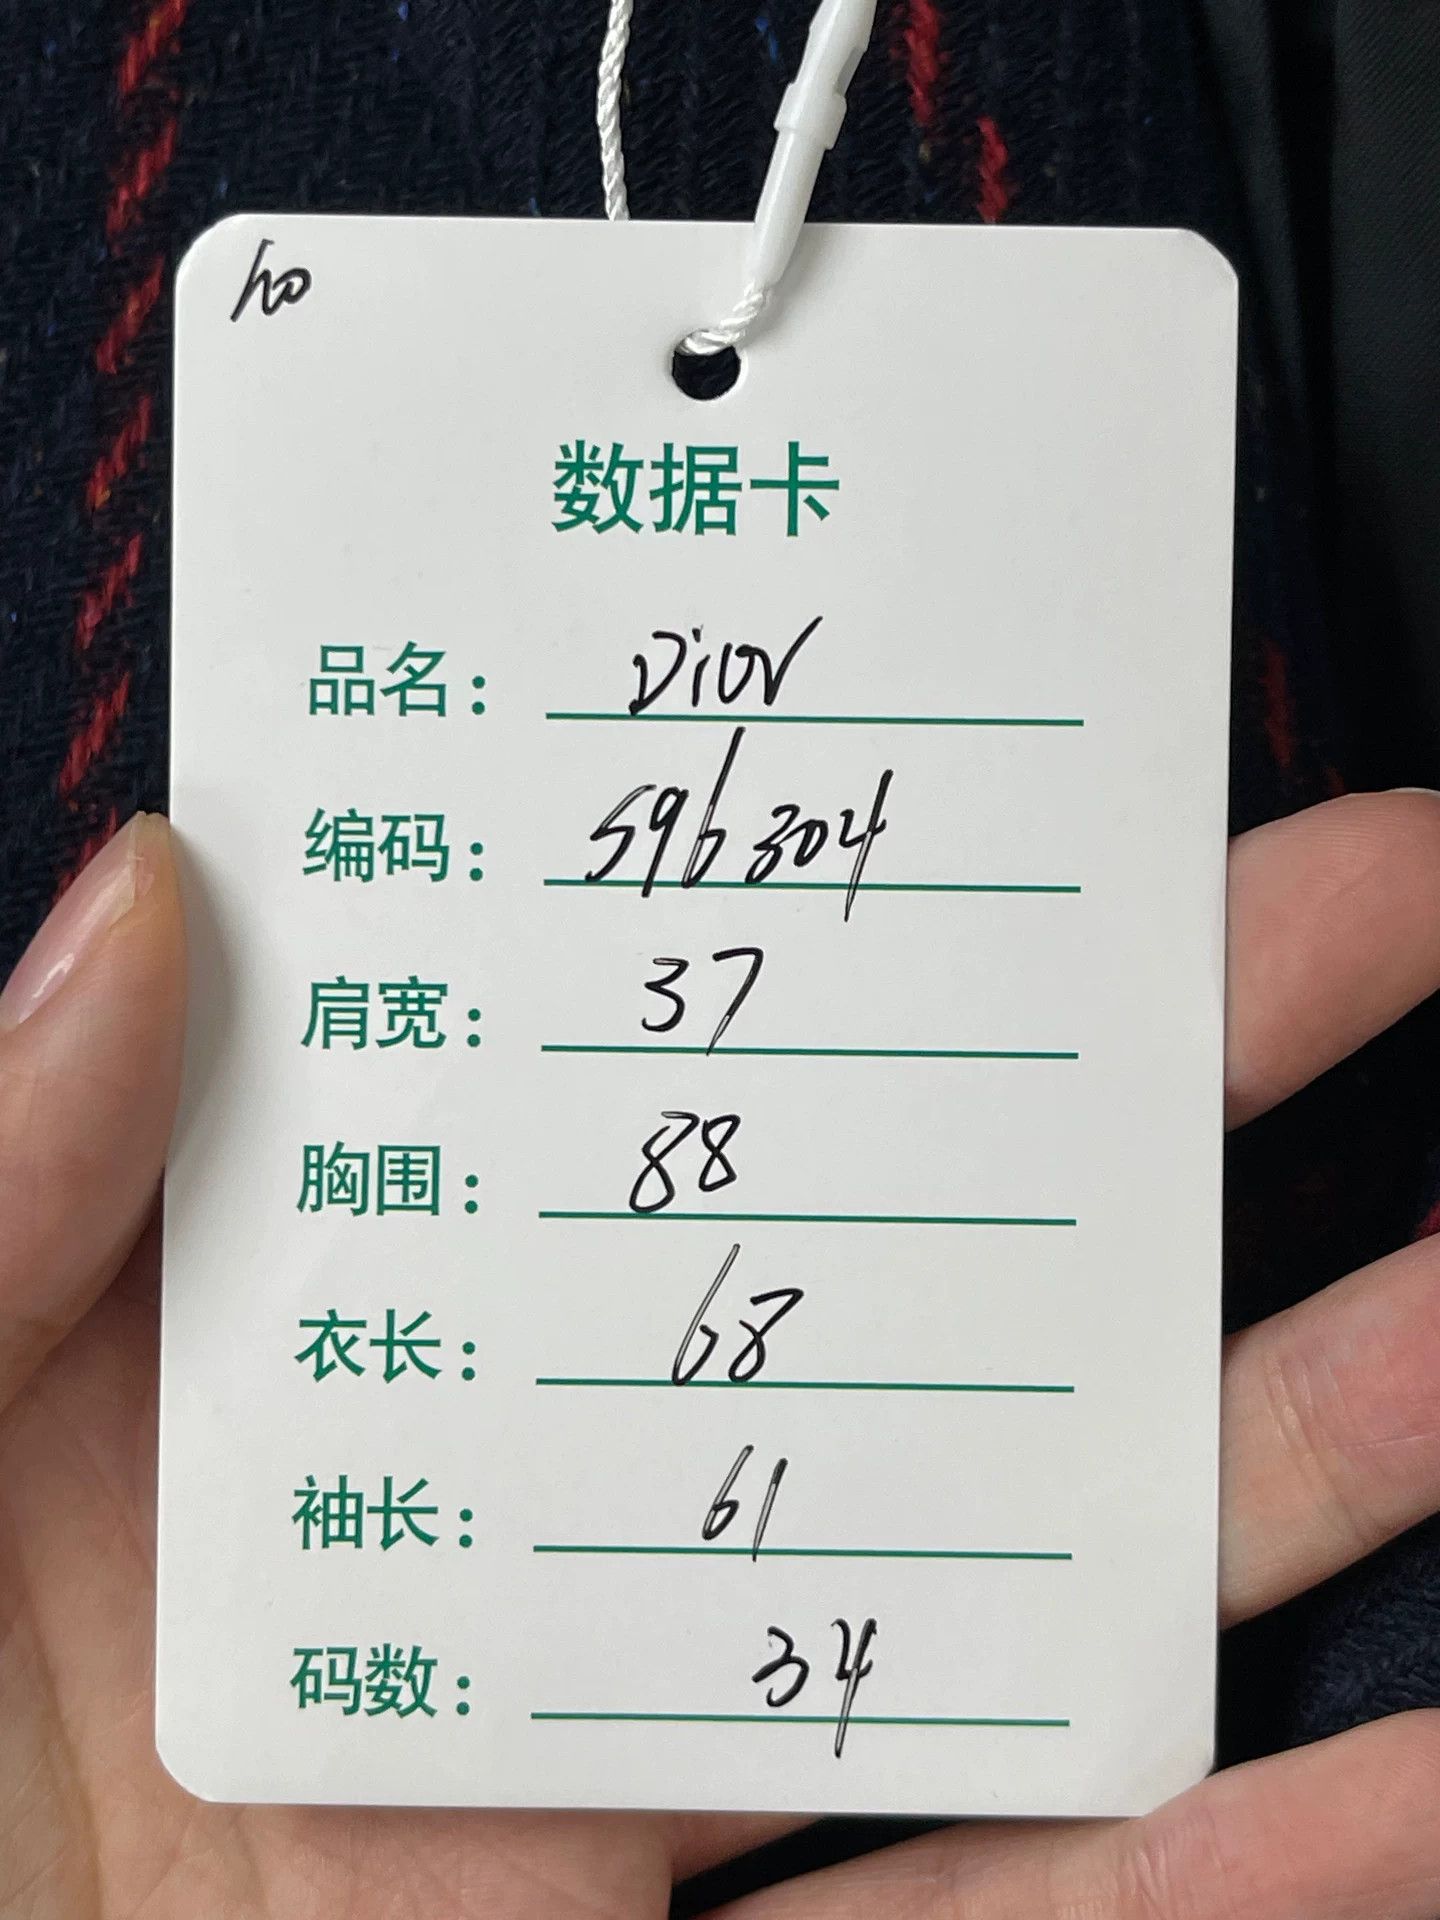 数据卡
品名： Dior
编码： 596304
肩宽： 37
胸围： 88
衣长： 68
袖长： 61
码数： 34